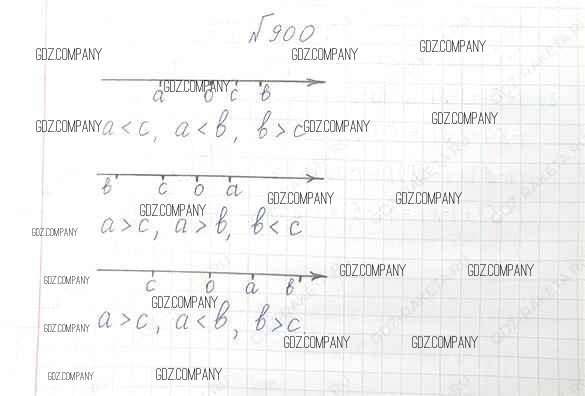 №900
GDZ.COMPANY GDZ.COMPANY GDZ.COMPANY
GDZ.COMPANY
a 0 c в
GDZ.COMPANY a < c, a < в, в > c GDZ.COMPANY GDZ.COMPANY
в c 0 a
GDZ.COMPANY GDZ.COMPANY GDZ.COMPANY
GDZ.COMPANY a > c, a > в, в < c
GDZ.COMPANY GDZ.COMPANY GDZ.COMPANY
c 0 a в
GDZ.COMPANY
GDZ.COMPANY a > c, a < в, в > c.
GDZ.COMPANY GDZ.COMPANY
GDZ.COMPANY GDZ.COMPANY